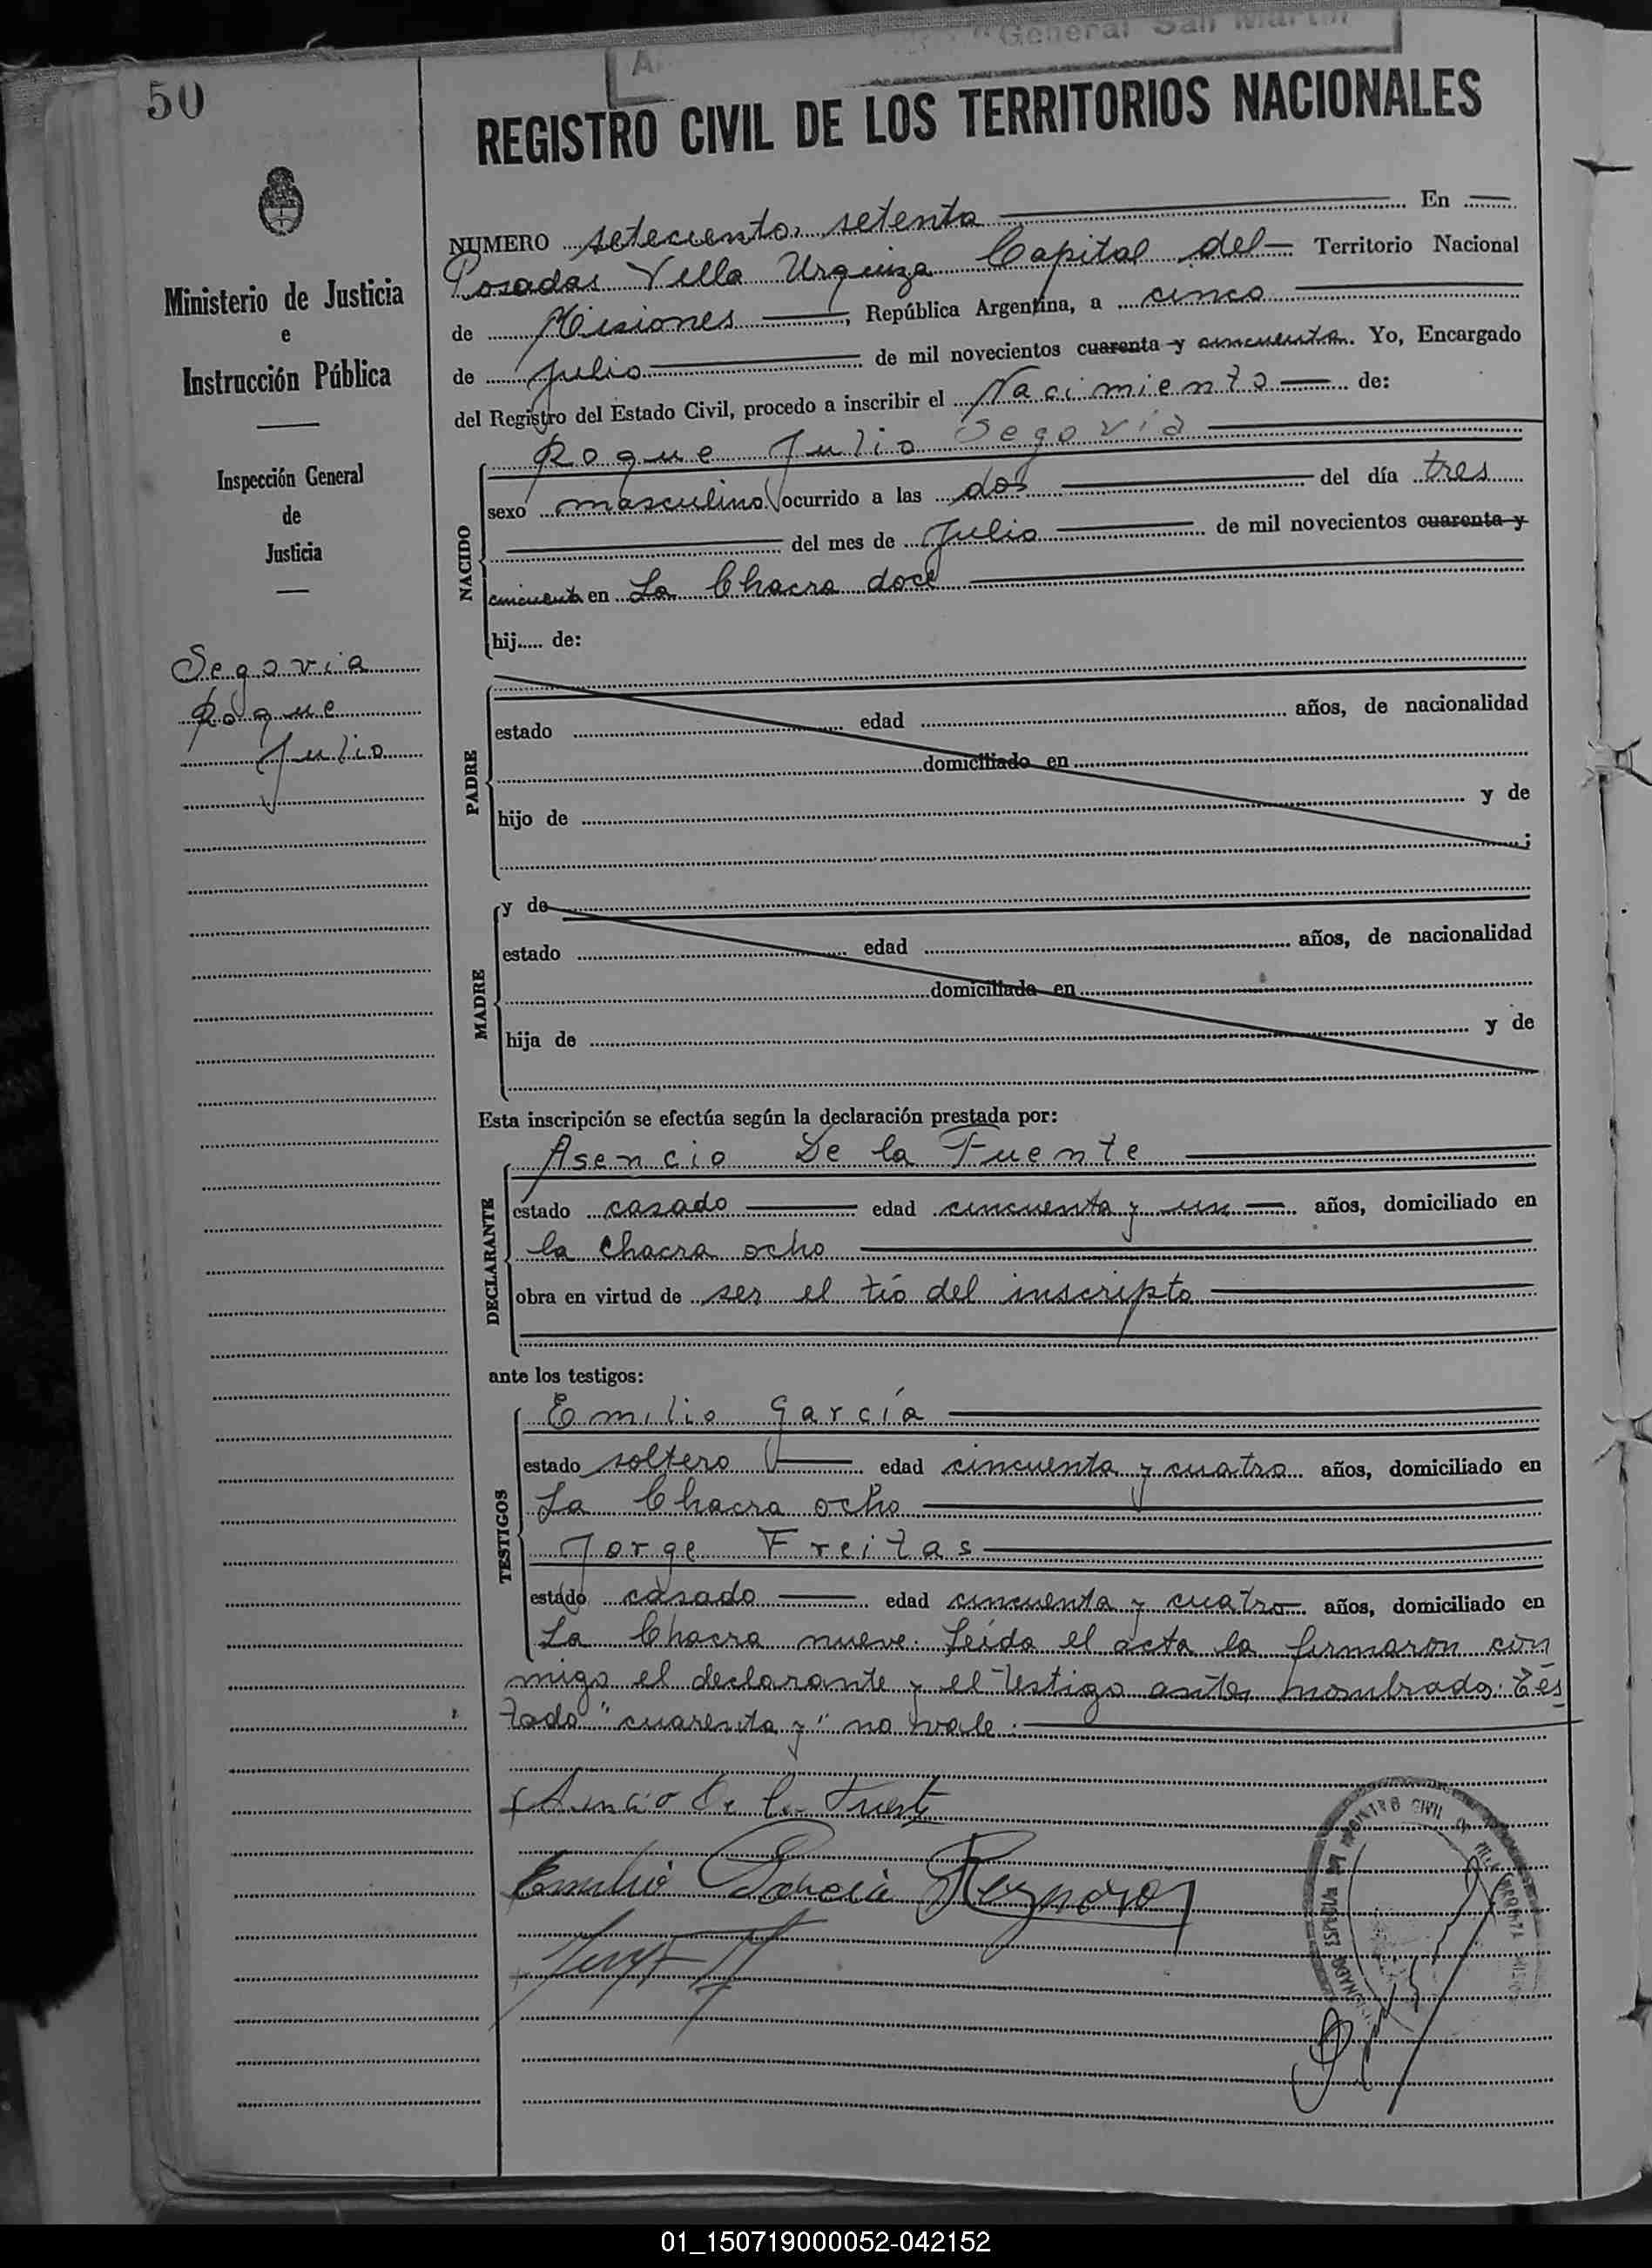 "General San Martín"
50
REGISTRO CIVIL DE LOS TERRITORIOS NACIONALES
NUMERO setecientos setenta En
Posadas Villa Urquiza Capital del Territorio Nacional
de Misiones, República Argentina, a cinco
de Julio de mil novecientos cuarenta y cincuenta. Yo, Encargado
del Registro del Estado Civil, procedo a inscribir el Nacimiento de:
Ministerio de Justicia
e
Instrucción Pública
Inspección General
de
Justicia
Segovia
Roque
Julio
NACIDO
Roque Julio Segovia
sexo masculino ocurrido a las dos del día tres
del mes de Julio de mil novecientos cuarenta y
cincuenta en La Chacra doce
hij..... de:
PADRE
estado edad años, de nacionalidad
domiciliado en
hijo de y de
;
MADRE
y de
estado edad años, de nacionalidad
domiciliada en
hija de y de
Esta inscripción se efectúa según la declaración prestada por:
DECLARANTE
Asencio De la Fuente
estado casado edad cincuenta y un años, domiciliado en
la chacra ocho
obra en virtud de ser el tío del inscripto
ante los testigos:
TESTIGOS
Emilio García
estado soltero edad cincuenta y cuatro años, domiciliado en
La Chacra ocho
Jorge Freitas
estado casado edad cincuenta y cuatro años, domiciliado en
La Chacra nueve. Leída el acta la firmaron con
migo el declarante y el testigo antes nombrado. Tes
tado "cuarenta y" no vale.
Asencio De la Fuente
Emilio Garcia Reynoso
REGISTRO CIVIL DE VILLA URQUIZA
01_150719000052-042152